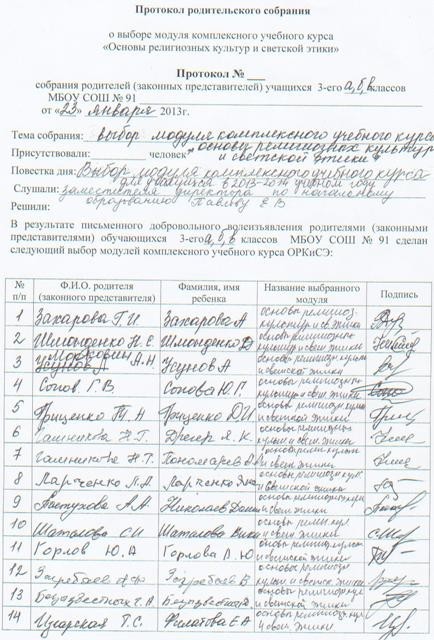 Протокол родительского собрания
о выборе модуля комплексного учебного курса
«Основы религиозных культур и светской этики»
Протокол № ___
собрания родителей (законных представителей) учащихся 3-его а, б, в классов
МБОУ СОШ № 91
от «23» января 2013г.
Тема собрания: выбор модуля комплексного учебного курса
„основы религиозных культур
Присутствовали: ________ человек
и светской этики"
Повестка дня: Выбор модуля комплексного учебного курса
для учащихся в 2013-2014 учебном году
Слушали: заместителя директора по начальному
образованию Павлову Е В
Решили:
В результате письменного добровольного волеизъявления родителями (законными
представителями) обучающихся 3-его а, б, в классов МБОУ СОШ № 91 сделан
следующий выбор модулей комплексного учебного курса ОРКиСЭ:
№ п/п Ф.И.О. родителя (законного представителя) Фамилия, имя ребенка Название выбранного модуля Подпись
1 Захарова Г. И Захарова А основы религиоз. культур и св. этики
2 Шимоненко Н. Е Шимоненко Д основы религиозн. культур и св. этики
3 А. Н. А основы религиозн культ и светской этики
4 Сопов Г. В Сопова Ю. Г. основы религиозн культур и свет этики
5 Гриценко Т. А Гриценко Д. И. основы религиозн культ и светской этики
6 Н. Г. Я. К. основы религиозн культ и свет. этики
7 Н. Г. Пономарева основы религ. культ и свет. этики
8 Ларченко Л. А Ларченко основы религиозн культ и светской этики
9 Пастухова А. А. Николаев основы религиозн культ и светск этики
10 Шаталова С. И Шаталова основы религ кул и светской этики
11 Горлов Ю. А Горлова Л. Ю основы религиозн культ и светской этики
12 основы религиоз культур и светск. эти
13 Безызвестных Безызвестных основы религиозн культ и светской этики
14 Т. С. Филатова Е А основы религиозн культ и светской этики